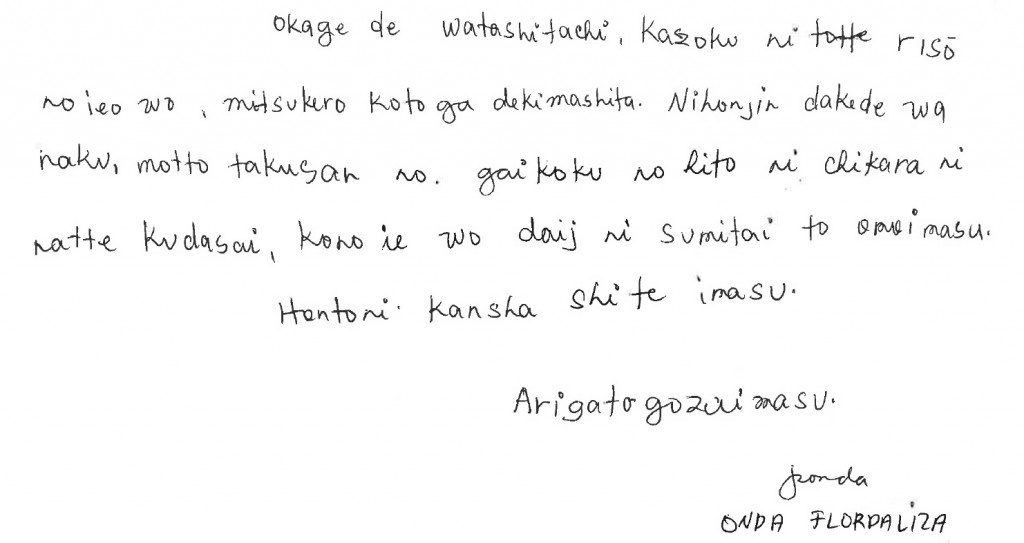 okage de watashitachi, kazoku ni totte risō
no ieo wo, mitsukero koto ga dekimashita. Nihonjin dakede wa
naku, motto takusan no. gaikoku no hito ni chikara ni
natte kudasai, kono ie wo daij ni sumitai to omoimasu.
Hontoni. kansha shite imasu.
Arigato gozaimasu.
ONDA FLORDALIZA